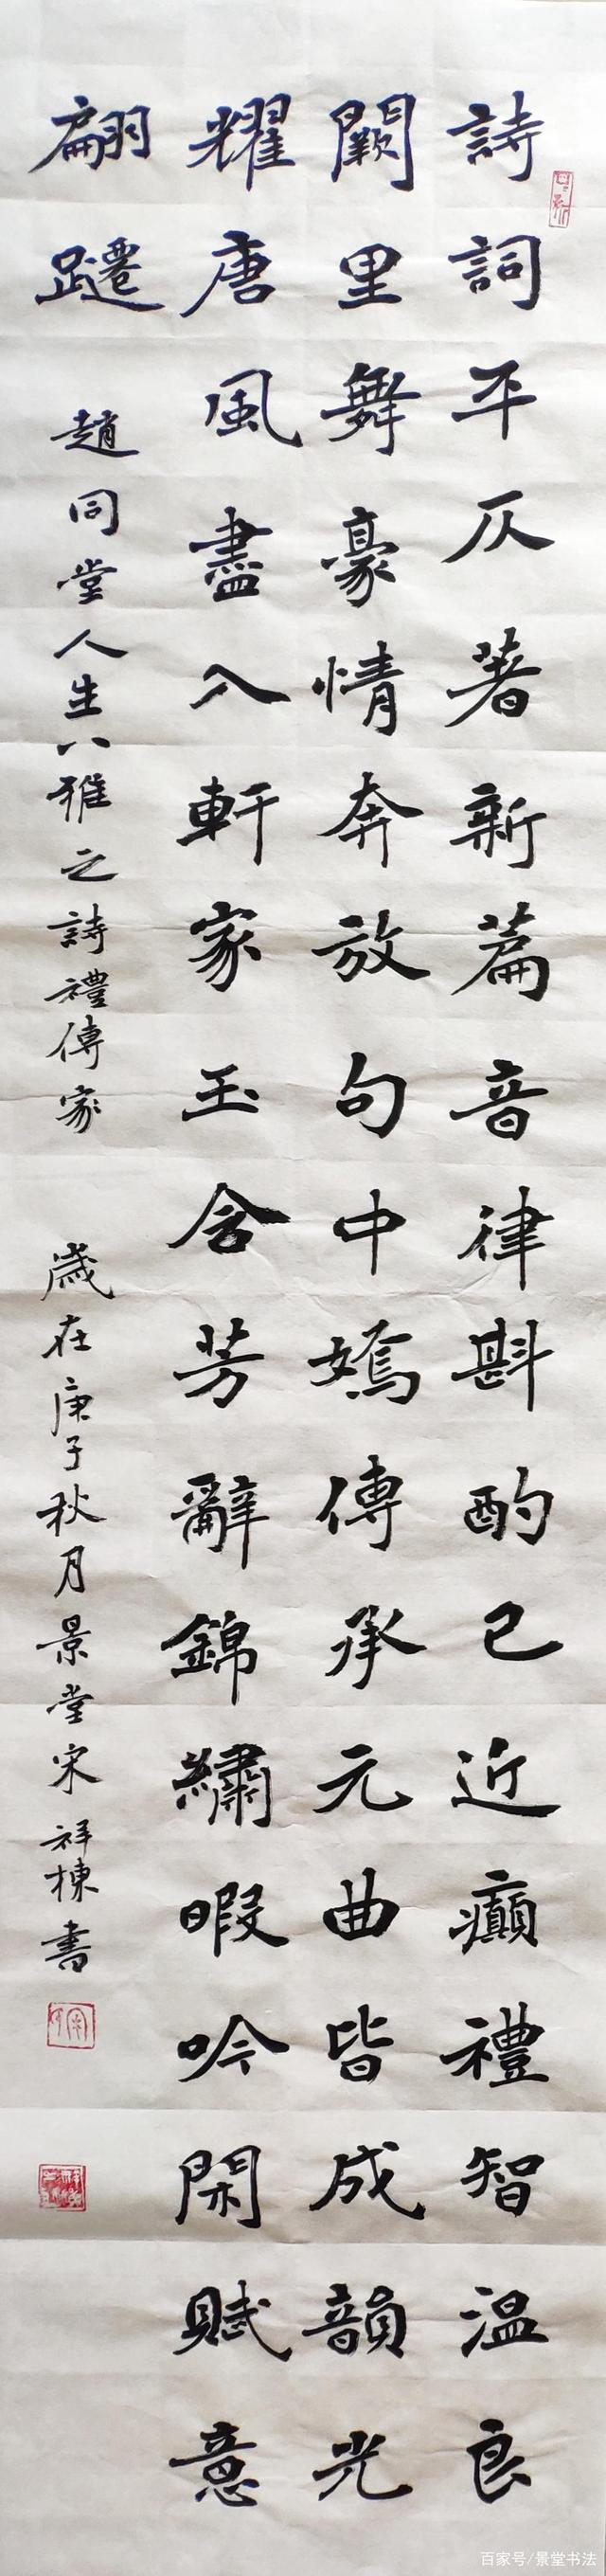 詩詞平仄著新篇音律斟酌已近癲禮智溫良
闕里舞豪情奔放句中嫣傳承元曲皆成韻光
耀唐風盡入軒家玉含芳辭錦繡暇吟閑賦意
翩躚
趙同堂人生八雅之詩禮傳家
歲在庚子秋月景堂宋祥棟書
百家号/景堂书法